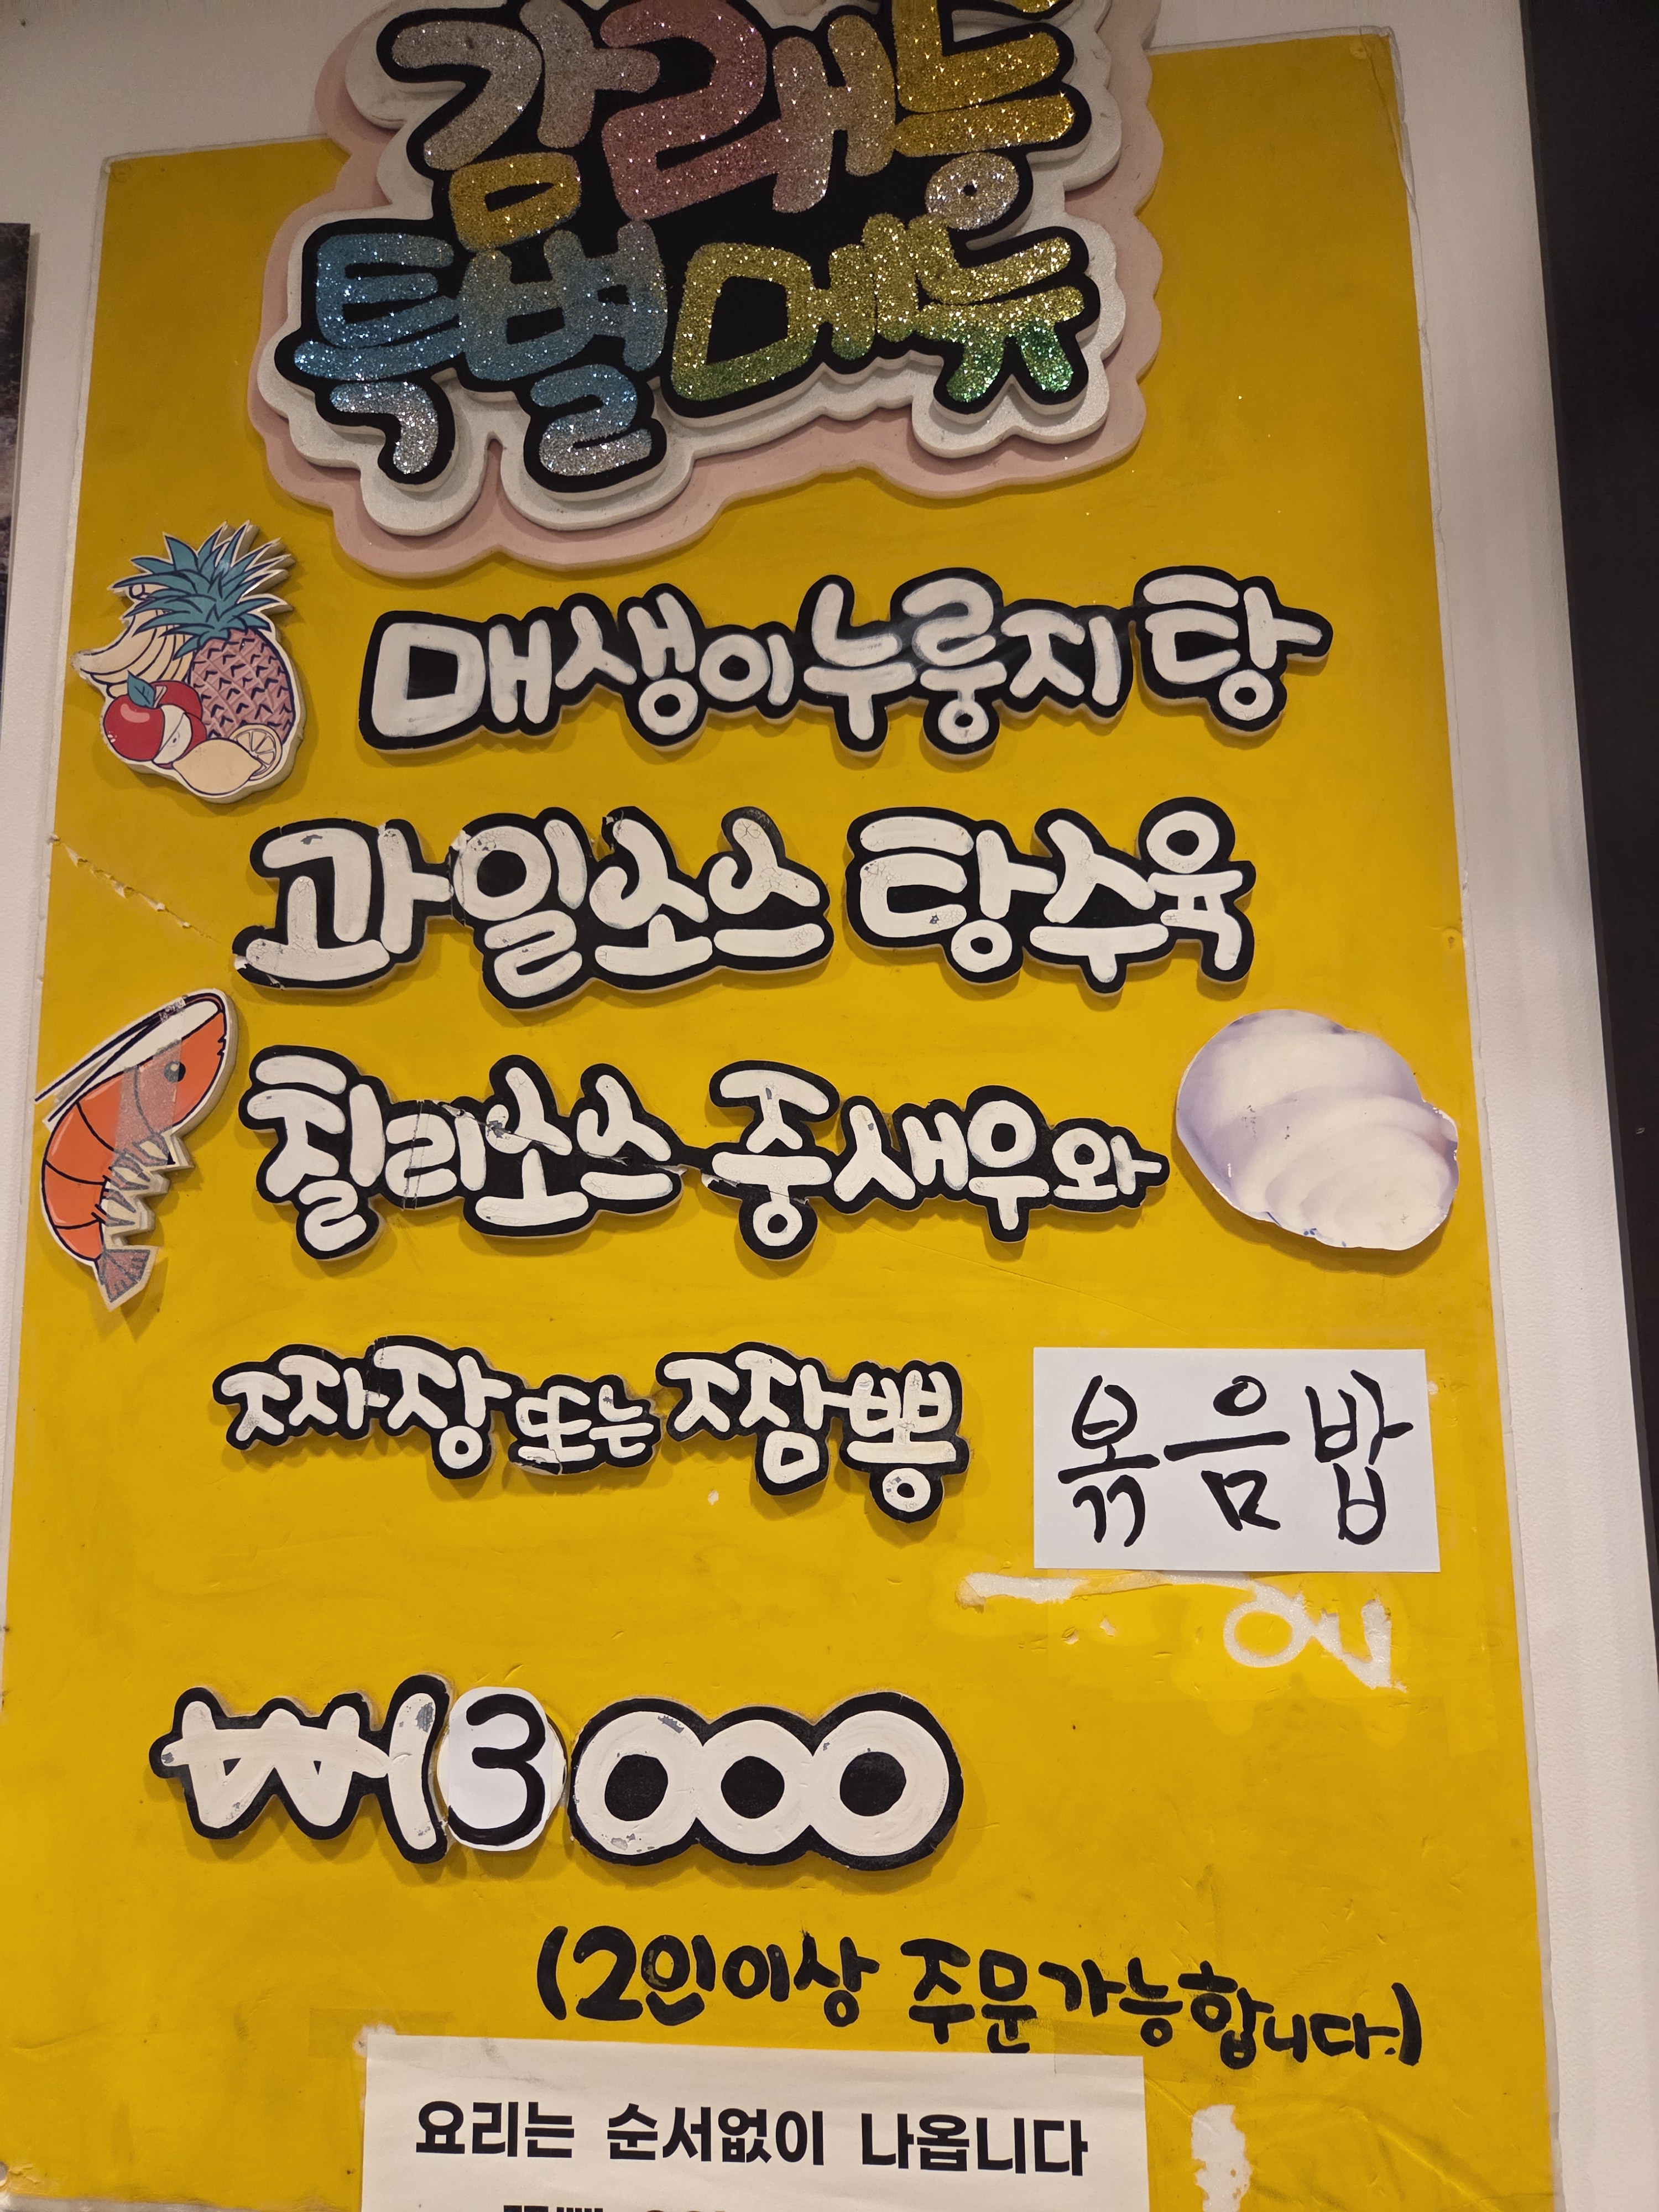 감래등
특별메뉴
매생이누룽지 탕
과일소스 탕수육
칠리소스 중새우와
짜장또는짬뽕 볶음밥
₩13000
(2인이상 주문가능합니다.)
요리는 순서없이 나옵니다